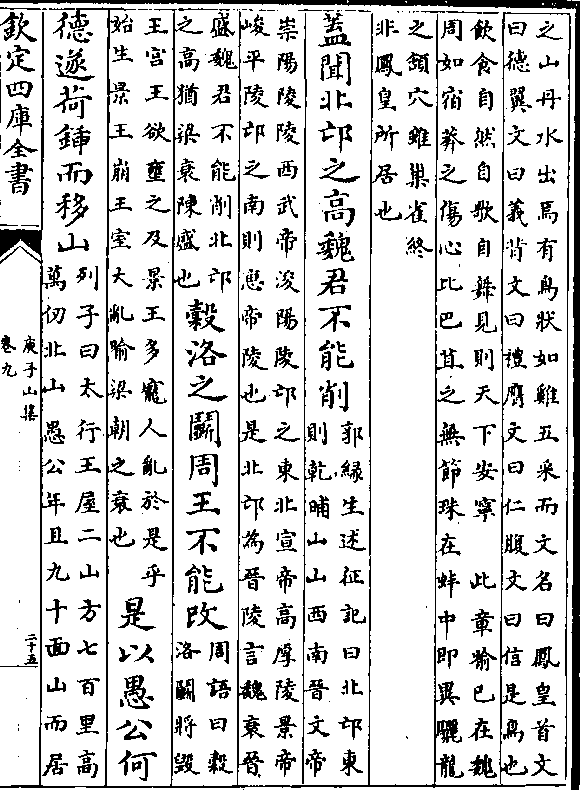 之山丹水出焉有鳥狀如雞五采而文名曰鳳皇首文
曰德翼文曰義背文曰禮膺文曰仁腹文曰信是鳥也
飲食自然自歌自舞見則天下安寧 此章喻巴在魏
周如宿莽之傷心比巴苴之無節珠在蚌中即異驪龍
之頷穴雖巢雀終
非鳳皇所居也
蓋聞北邙之高魏君不能削
郭緣生述征記曰北邙東
則乾脯山山西南晉文帝
崇陽陵陵西武帝浚陽陵邙之東北宣帝高厚陵景帝
峻平陵邙之南則惠帝陵也是北邙為晉陵言魏衰晉
盛魏君不能削北邙
之高猶梁衰陳盛也
穀洛之鬭周王不能改
周語曰穀
洛鬭將毀
王宫王欲壅之及景王多寵人亂於是乎
始生景王崩王室大亂喻梁朝之衰也
是以愚公何
德遂荷鍤而移山
列子曰太行王屋二山方七百里高
萬仞北山愚公年且九十面山而居
欽定四庫全書
庾子山集
卷九
二十五